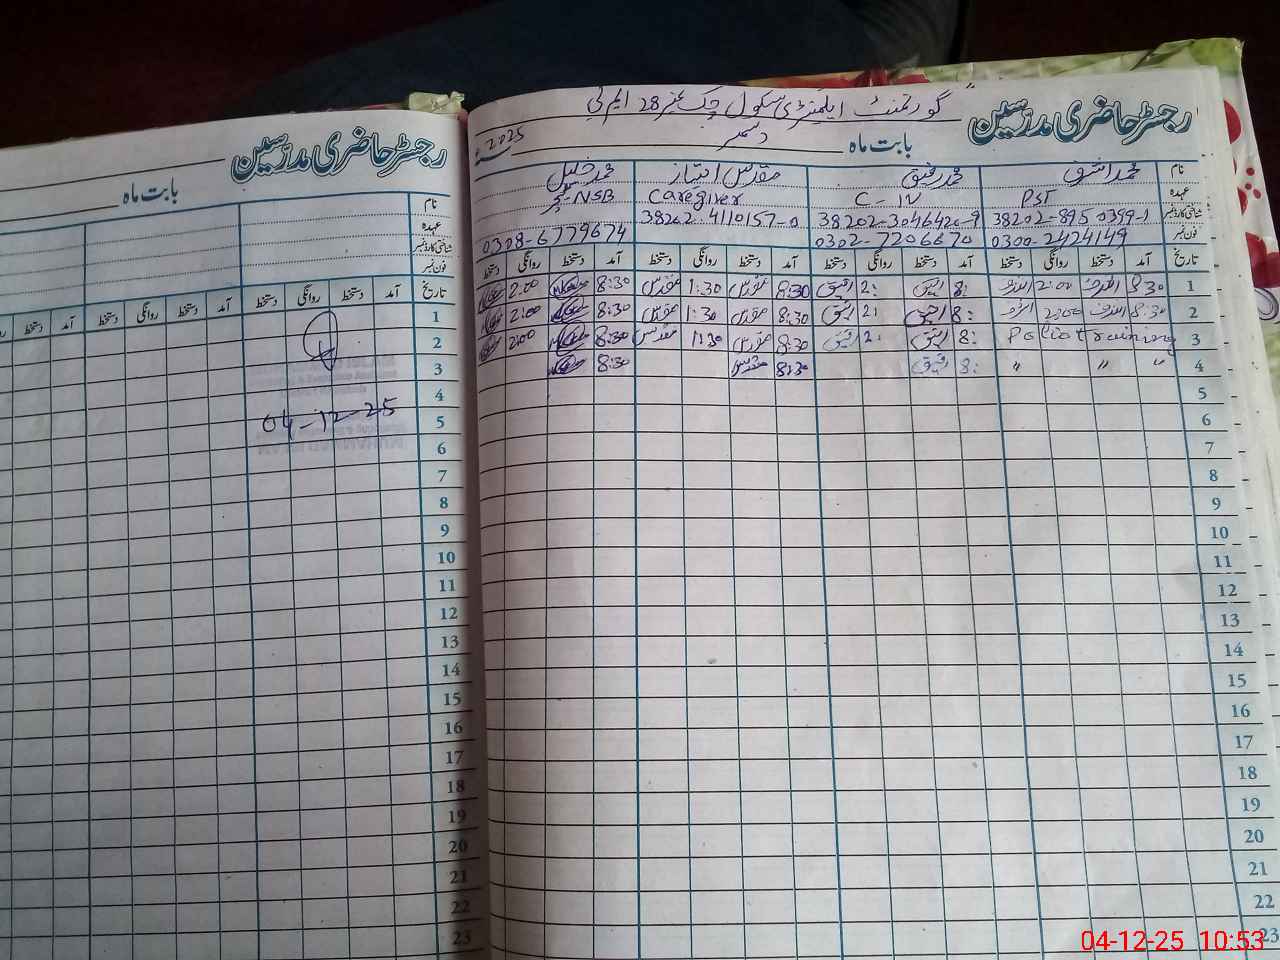 رجسٹر حاضری مدرسین
گورنمنٹ ایلیمنٹری سکول چک نمبر 28 ایم بی
بابت ماہ دسمبر 2025
نام محمد اشرف محمد رفیق مقدس امتیاز محمد خلیل
عہدہ PST C-IV Caregiver NSB
شناختی کارڈ نمبر 38202-8950399-1 38202-3046420-9 38202-4110157-0
فون نمبر 0300-2424149 0302-7206670 0308-6779674
تاریخ آمد دستخط روانگی دستخط آمد دستخط روانگی دستخط آمد دستخط روانگی دستخط آمد دستخط روانگی دستخط
1 8:30 2:00 8: 2: 8:30 مقدس 1:30 مقدس 8:30 2:00
2 8:30 2:00 8: 2: 8:30 مقدس 1:30 مقدس 8:30 2:00
3 Polio training 8: 2: 8:30 مقدس 1:30 مقدس 8:30 2:00
4 " " " 8: 8:30 مقدس 8:30
5
6
7
8
9
10
11
12
13
14
15
16
17
18
19
20
21
22
23
رجسٹر حاضری مدرسین
بابت ماہ
نام
عہدہ
شناختی کارڈ نمبر
فون نمبر
تاریخ آمد دستخط روانگی دستخط آمد دستخط روانگی دستخط آمد دستخط
1
2
3
4
5 04-12-25
6
7
8
9
10
11
12
13
14
15
16
17
18
19
20
21
22
23
04-12-25 10:53